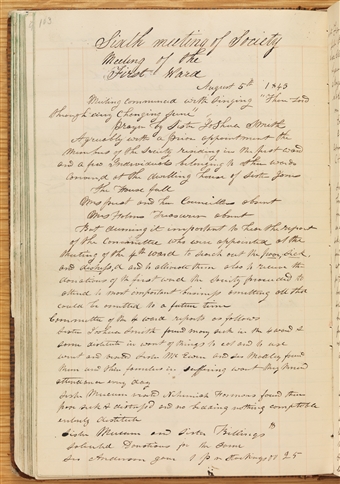 113
Sixth meeting of Society
Meeting of the
First Ward
August 5th 1843
Meeting commenced with singing "Thou Lord
through every Changing scene"
Prayer by Sister Smith
Agreeably with a prior appointment the
Members of the Society residing in the first ward
and a few Individuals belonging to other wards
convened at the dwelling house of Sister Jones
The House full
Mrs Prest and her Councillors absent
Mrs Treasurer absent
But deeming it important to hear the report
of the Committee who were appointed at the
Meeting of the 4th ward to search out the poor, sick,
and distress,d and to alleviate them also to receive the
donations of the first ward the Society proceeded to
attend to most important business omitting all that
could be omitted to a future time
Committee of the 4 ward reports as follows
Sister Smith found many sick in the ward &
some destitute in want of things to eat and to use
went and visited Sister Mc Ewen and Sis Modley found
them and their families in suffering want they need
attendance every day
Sister Museum visited Nehemiah Harmons found them
poor sick & distressed and no bedding nothing comfortable
entirely destitute
Sister Museum and Sister Billings
solicited Donations for the Same
Sis Anderson gave 1 p stockings 25